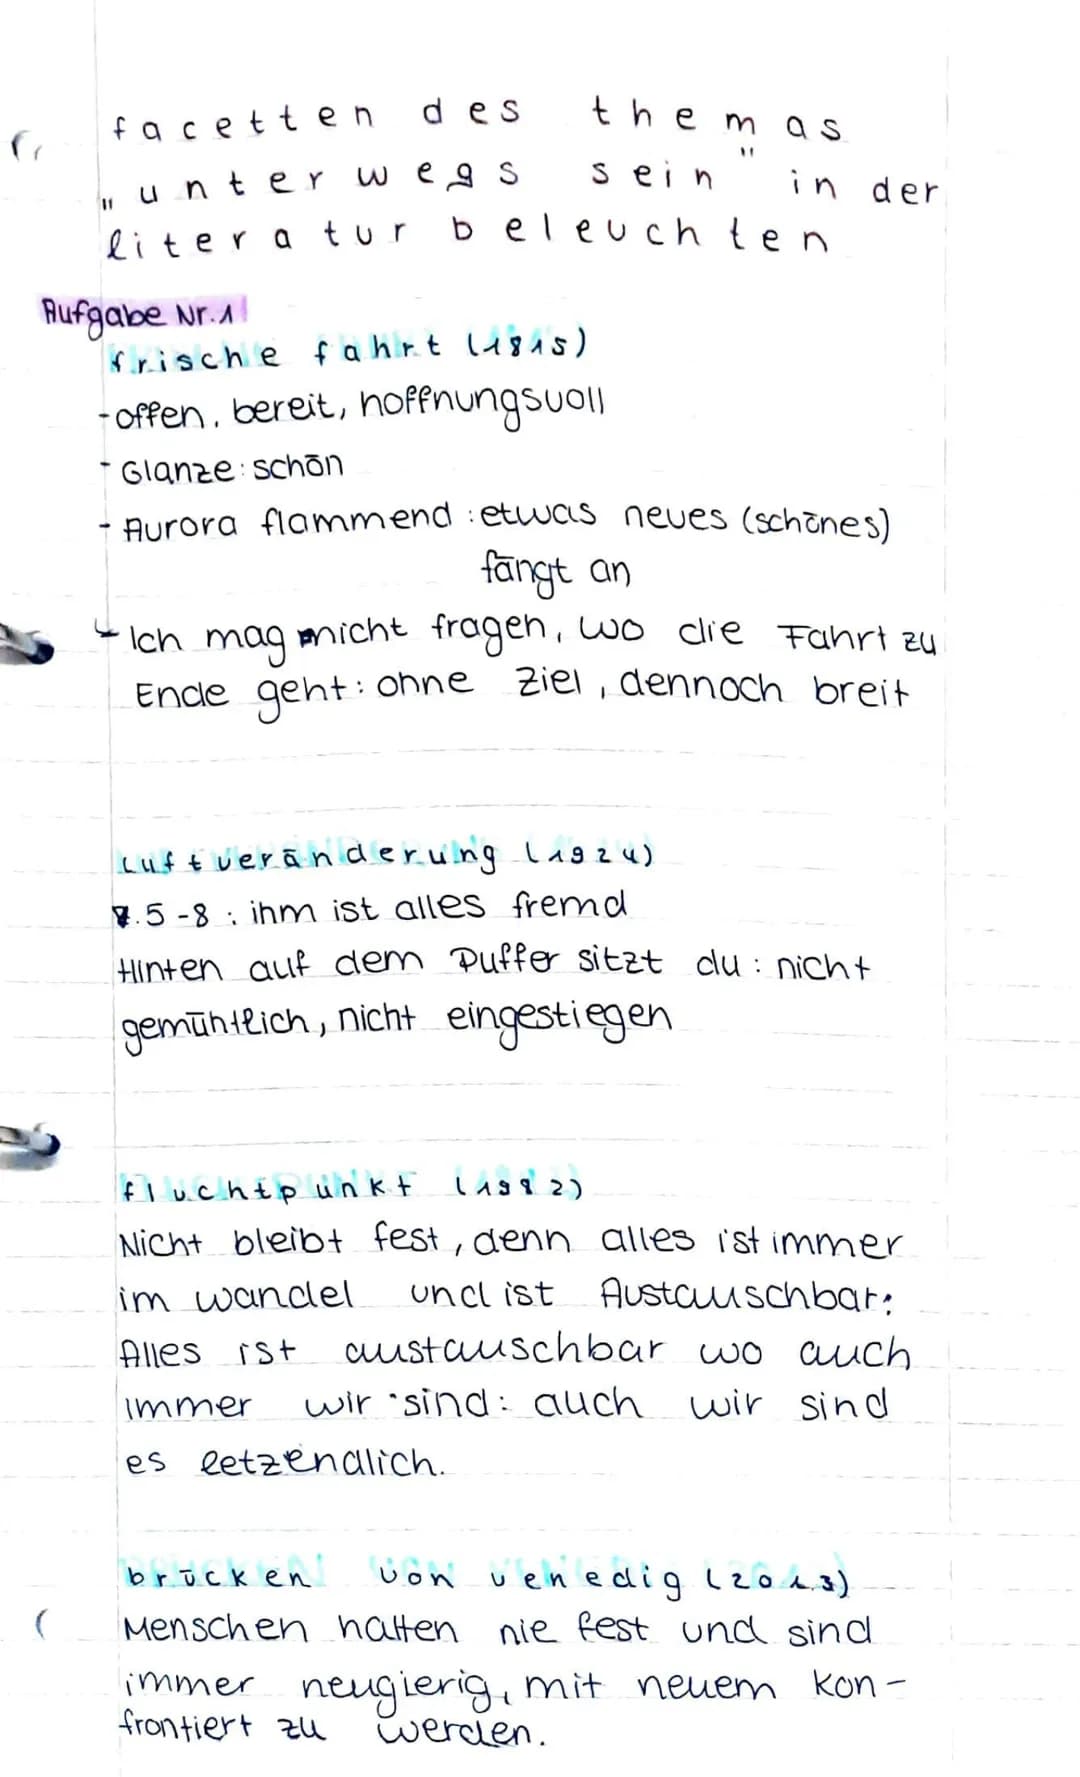 facetten des themas
„unterwegs sein" in der
literatur beleuchten
Aufgabe Nr.1
frische fahrt (1815)
-offen, bereit, hoffnungsvoll
- Glanze: schön
- Aurora flammend : etwas neues (schönes)
fängt an
- Ich mag nicht fragen, wo die Fahrt zu
Ende geht: ohne Ziel, dennoch breit
Luftveränderung (1924)
V.5-8 : ihm ist alles fremd
Hinten auf dem Puffer sitzt du : nicht
gemühtlich, nicht eingestiegen
fluchtpunkt (1982)
Nicht bleibt fest, denn alles ist immer
im wandel und ist Austauschbar:
Alles ist austauschbar wo auch
immer wir sind: auch wir sind
es letzendlich.
brücken von venedig (2013)
Menschen halten nie fest und sind
immer neugierig, mit neuem kon-
frontiert zu werden.